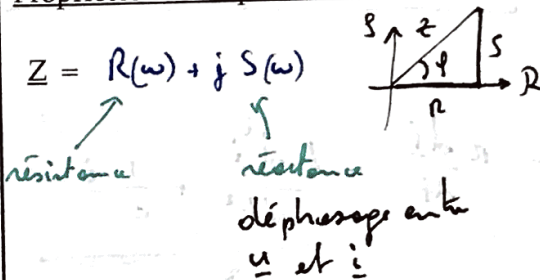 Z = R(ω) + j S(ω)
résistance
réactance
déphasage entre
u et i
S
Z
φ
S
R
R